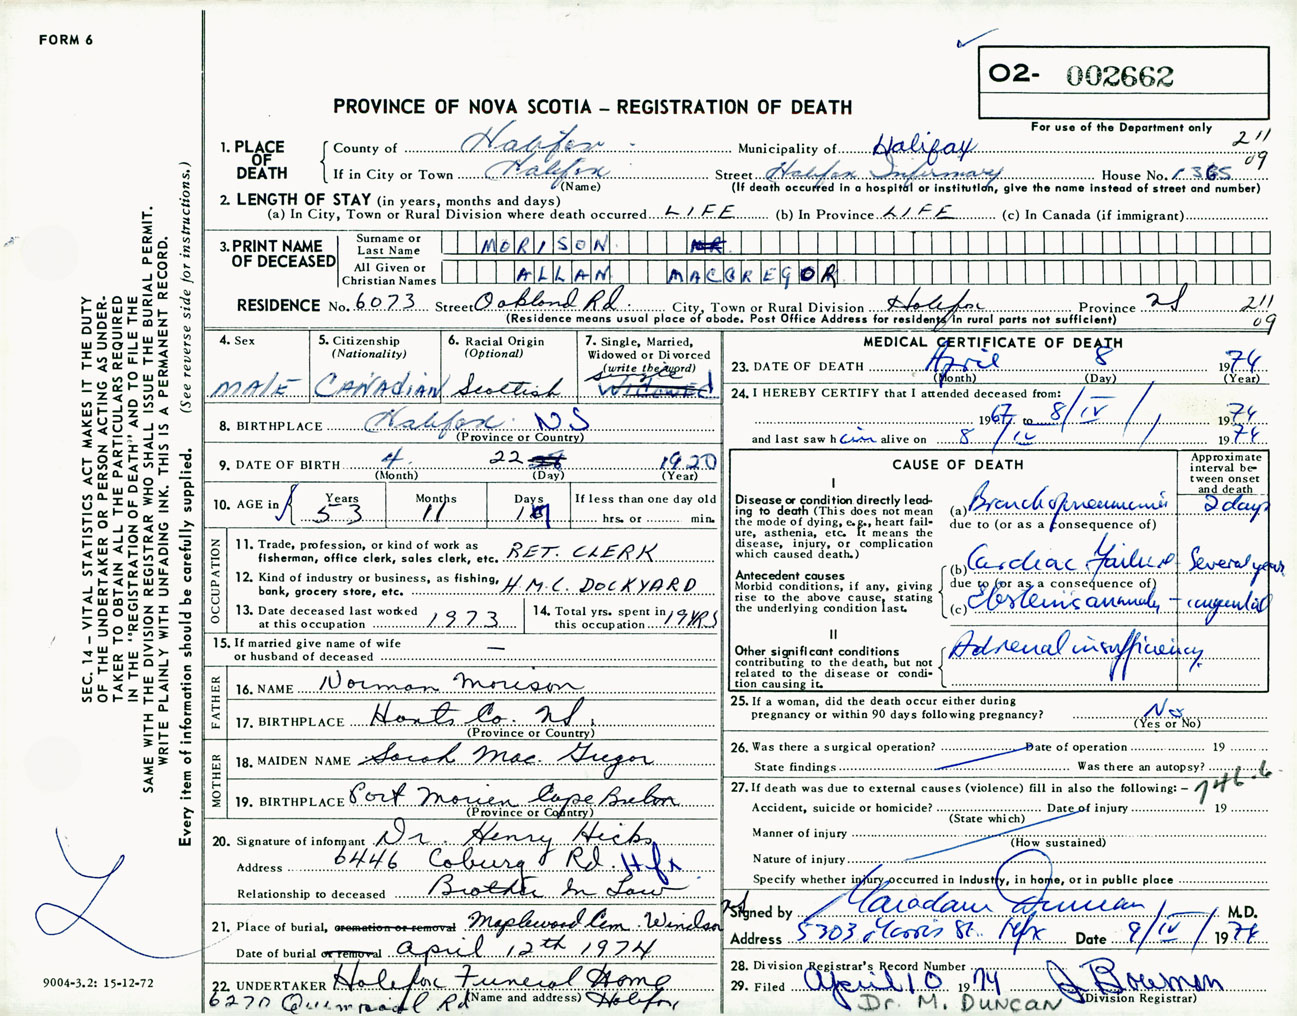 FORM 6
O2- 002662
PROVINCE OF NOVA SCOTIA – REGISTRATION OF DEATH
For use of the Department only
211
09
1. PLACE OF DEATH
County of Halifax Municipality of Halifax
If in City or Town Halifax Street Halifax Infirmary House No. 1365
(Name) (If death occurred in a hospital or institution, give the name instead of street and number)
2. LENGTH OF STAY (in years, months and days)
(a) In City, Town or Rural Division where death occurred LIFE (b) In Province LIFE (c) In Canada (if immigrant)
3. PRINT NAME OF DECEASED
Surname or Last Name MORISON
All Given or Christian Names ALLAN MACGREGOR
RESIDENCE No. 6073 Street Oakland Rd. City, Town or Rural Division Halifax Province NS 211
(Residence means usual place of abode. Post Office Address for residents in rural parts not sufficient) 09
4. Sex
MALE
5. Citizenship
(Nationality)
CANADIAN
6. Racial Origin
(Optional)
Scottish
7. Single, Married,
Widowed or Divorced
(write the word)
single
WIDOWED
8. BIRTHPLACE Halifax NS
(Province or Country)
9. DATE OF BIRTH 4 22 1920
(Month) (Day) (Year)
10. AGE in Years Months Days If less than one day old
53 11 hrs. or min.
OCCUPATION
11. Trade, profession, or kind of work as
fisherman, office clerk, sales clerk, etc. RET. CLERK
12. Kind of industry or business, as fishing,
bank, grocery store, etc. H.M.C. DOCKYARD
13. Date deceased last worked
at this occupation 1973
14. Total yrs. spent in
this occupation 19 YRS
15. If married give name of wife
or husband of deceased —
FATHER
16. NAME Norman Morison
17. BIRTHPLACE Hants Co. NS.
(Province or Country)
MOTHER
18. MAIDEN NAME Sarah Mac Gregor
19. BIRTHPLACE Port Morien Cape Breton
(Province or Country)
20. Signature of informant Dr. Henry Hicks
Address 6446 Coburg Rd. Hfx
Relationship to deceased Brother In Law
21. Place of burial, cremation or removal Maplewood Cem. Windsor NS
Date of burial or removal April 12th 1974
22. UNDERTAKER Halifax Funeral Home
(Name and address)
6270 Quinpool Rd Halifax
MEDICAL CERTIFICATE OF DEATH
23. DATE OF DEATH April 8 1974
(Month) (Day) (Year)
24. I HEREBY CERTIFY that I attended deceased from:
1967 to 8/IV/ 1974
and last saw him alive on 8/IV 1974
CAUSE OF DEATH
Approximate interval between onset and death
I
Disease or condition directly leading to death (This does not mean the mode of dying, e.g., heart failure, asthenia, etc. It means the disease, injury, or complication which caused death.)
(a) Bronchopneumonia 2 days
due to (or as a consequence of)
Antecedent causes
Morbid conditions, if any, giving rise to the above cause, stating the underlying condition last.
(b) Cardiac Failure Several years
due to (or as a consequence of)
(c) Ebstein's anomaly – congenital
II
Other significant conditions
contributing to the death, but not related to the disease or condition causing it.
Adrenal insufficiency
25. If a woman, did the death occur either during
pregnancy or within 90 days following pregnancy? No
(Yes or No)
26. Was there a surgical operation? Date of operation 19
State findings Was there an autopsy?
746.6
27. If death was due to external causes (violence) fill in also the following: –
Accident, suicide or homicide? Date of injury 19
(State which)
Manner of injury
(How sustained)
Nature of injury
Specify whether injury occurred in Industry, in home, or in public place
Signed by Duncan M.D.
Address 5303 Morris St. Hfx Date 9/IV/ 1974
28. Division Registrar's Record Number
29. Filed April 10 1974 J Bowman
(Division Registrar)
Dr. M. DUNCAN
SEC. 14 – VITAL STATISTICS ACT MAKES IT THE DUTY
OF THE UNDERTAKER OR PERSON ACTING AS UNDER-
TAKER TO OBTAIN ALL THE PARTICULARS REQUIRED
IN THE "REGISTRATION OF DEATH" AND TO FILE THE
SAME WITH THE DIVISION REGISTRAR WHO SHALL ISSUE THE BURIAL PERMIT.
WRITE PLAINLY WITH UNFADING INK. THIS IS A PERMANENT RECORD.
Every item of information should be carefully supplied. (See reverse side for instructions.)
9004-3.2: 15-12-72